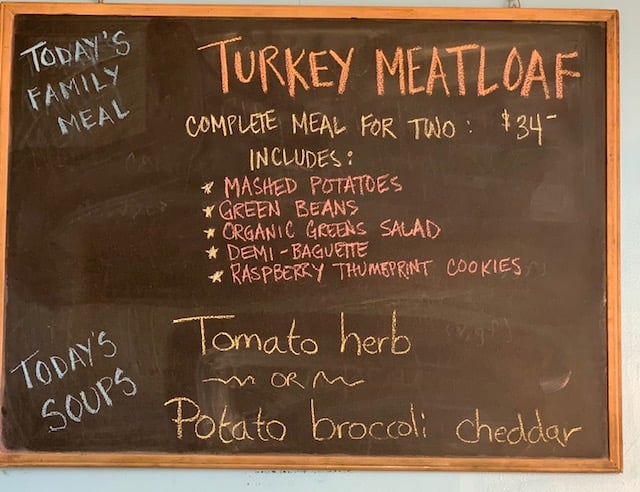 TODAY'S
FAMILY
MEAL
TURKEY MEATLOAF
COMPLETE MEAL FOR TWO: $34-
INCLUDES:
* MASHED POTATOES
* GREEN BEANS
* ORGANIC GREENS SALAD
* DEMI-BAGUETTE
* RASPBERRY THUMBPRINT COOKIES
TODAY'S
SOUPS
Tomato herb
~ OR ~
Potato broccoli cheddar